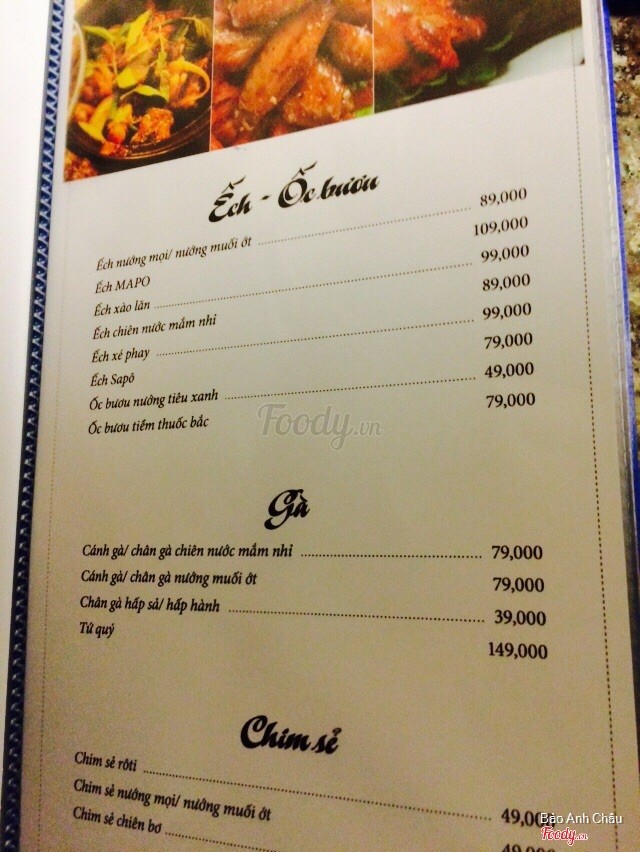 Ếch - Ốc bươu
Ếch nướng mọi/ nướng muối ớt 89,000
Ếch MAPO 109,000
Ếch xào lăn 99,000
Ếch chiên nước mắm nhỉ 89,000
Ếch xé phay 99,000
Ếch Sapô 79,000
Ốc bươu nướng tiêu xanh 49,000
Ốc bươu tiềm thuốc bắc 79,000
Foody.vn
Gà
Cánh gà/ chân gà chiên nước mắm nhỉ 79,000
Cánh gà/ chân gà nướng muối ớt 79,000
Chân gà hấp sả/ hấp hành 39,000
Tứ quý 149,000
Chim sẻ
Chim sẻ rôti 49,000
Chim sẻ nướng mọi/ nướng muối ớt
Chim sẻ chiên bơ
Bảo Anh Châu
Foody.vn